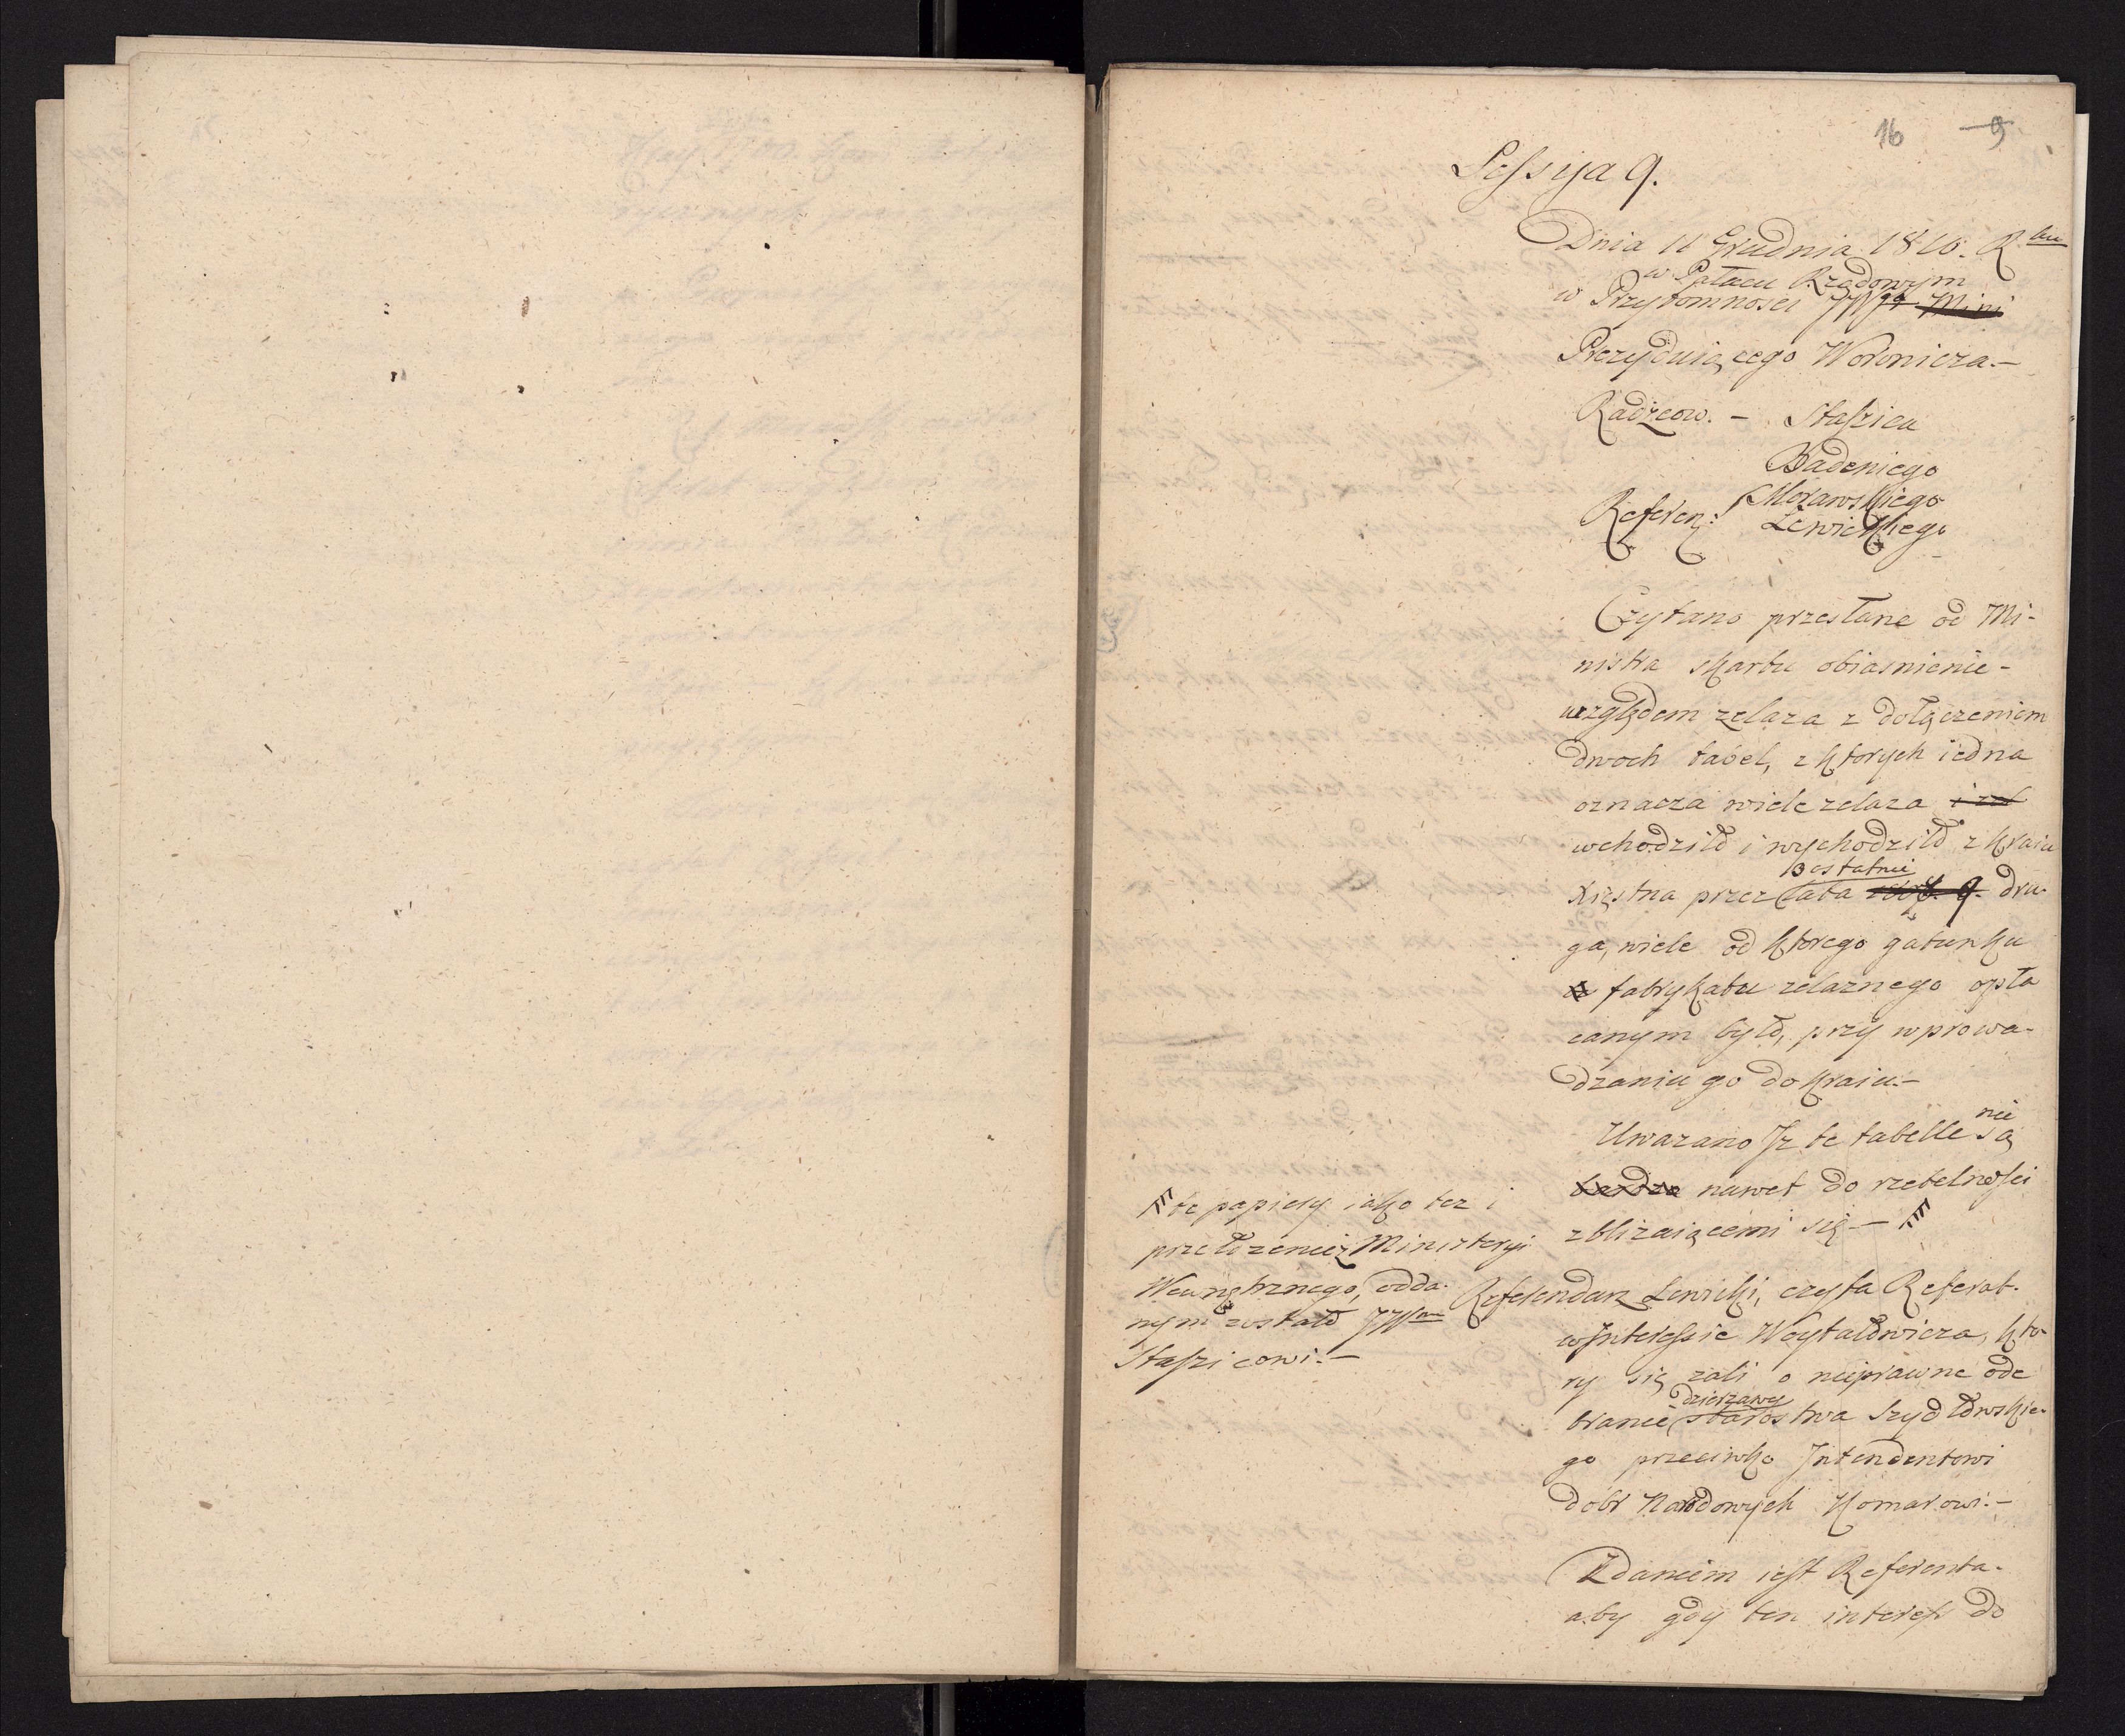 16 9
Sessyja 9.
Dnia 11 Grudnia 1810. Rku
w Pałacu Rządowym
w Przytomnosci JWgo Mini
Prezyduiącego Woronicza.—
Radzcow. — Staszica
Badeniego
Morawskiego
Referen: Lewickiego
Czytano przesłane od Mi-
nistra skarbu obiasnienie-
względem zelaza z dołączeniem
dwoch tabel, z ktorych iedna
oznacza wiele zelaza i zel
wchodziło i wychodziło z kraiu
3 ostatnie
Xięstwa przez lata 9. dru-
ga, wiele od ktorego gatunku
fabrykatu zelaznego opła
canym było, przy wprowa-
dzaniu go do kraiu.—
Uwazano Jz te tabelle nie są
bardzo nawet do rzetelności
zbliżaiącemi się.—
te papiery iako tez i
przełozenie Ministeryi
Wewnętrznego, odda-
nym zostało JWmu
Staszicowi.—
Referendarz Lewicki, czyta Referat.
w Interessie Woytałowicza, kto-
ry się zali o nieprawne ode
dzierzawy
branie starostwa Szydłowskie-
go przeciwko Intendentowi
dóbr Narodowych Komarowi.—
Zdaniem iest Referenta-
aby gdy ten interess do